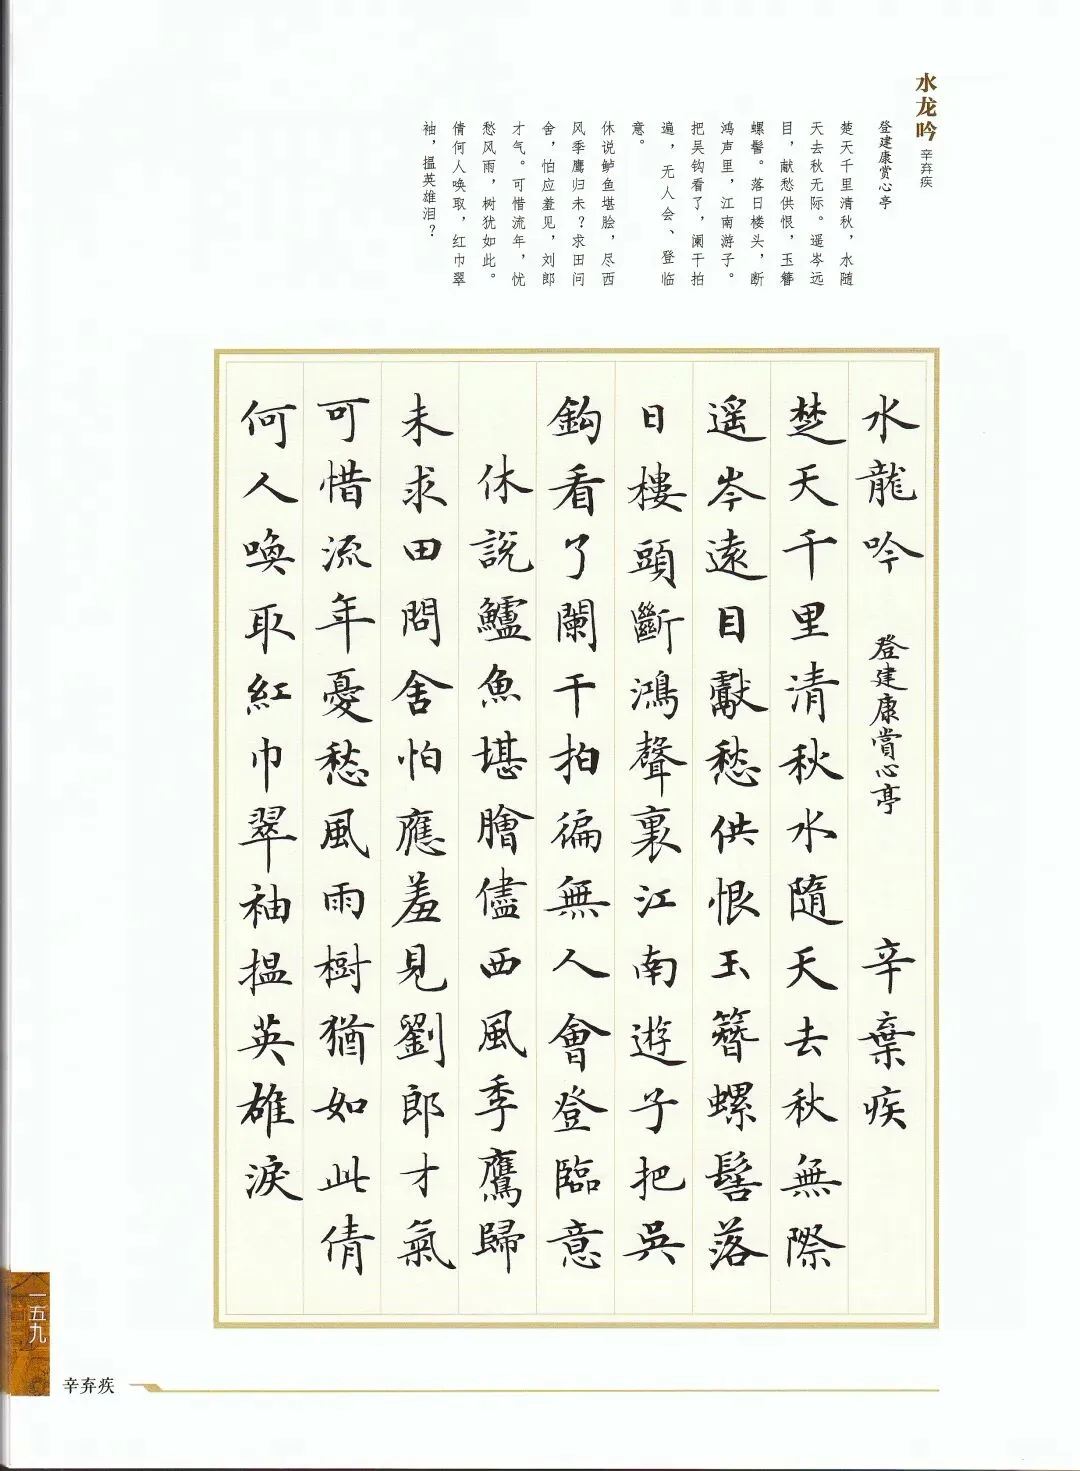 水龙吟 辛弃疾
登建康赏心亭
楚天千里清秋，水随
天去秋无际。遥岑远
目，献愁供恨，玉簪
螺髻。落日楼头，断
鸿声里，江南游子。
把吴钩看了，阑干拍
遍，无人会、登临
意。
休说鲈鱼堪脍，尽西
风季鹰归未？求田问
舍，怕应羞见，刘郎
才气。可惜流年，忧
愁风雨，树犹如此。
倩何人唤取，红巾翠
袖，揾英雄泪？
水龍吟 登建康賞心亭 辛棄疾
楚天千里清秋水隨天去秋無際
遥岑遠目獻愁供恨玉簪螺髻落
日樓頭斷鴻聲裏江南遊子把吳
鈎看了闌干拍徧無人會登臨意
休説鱸魚堪膾儘西風季鷹歸
未求田問舍怕應羞見劉郎才氣
可惜流年憂愁風雨樹猶如此倩
何人唤取紅巾翠袖揾英雄淚
一五九
辛弃疾